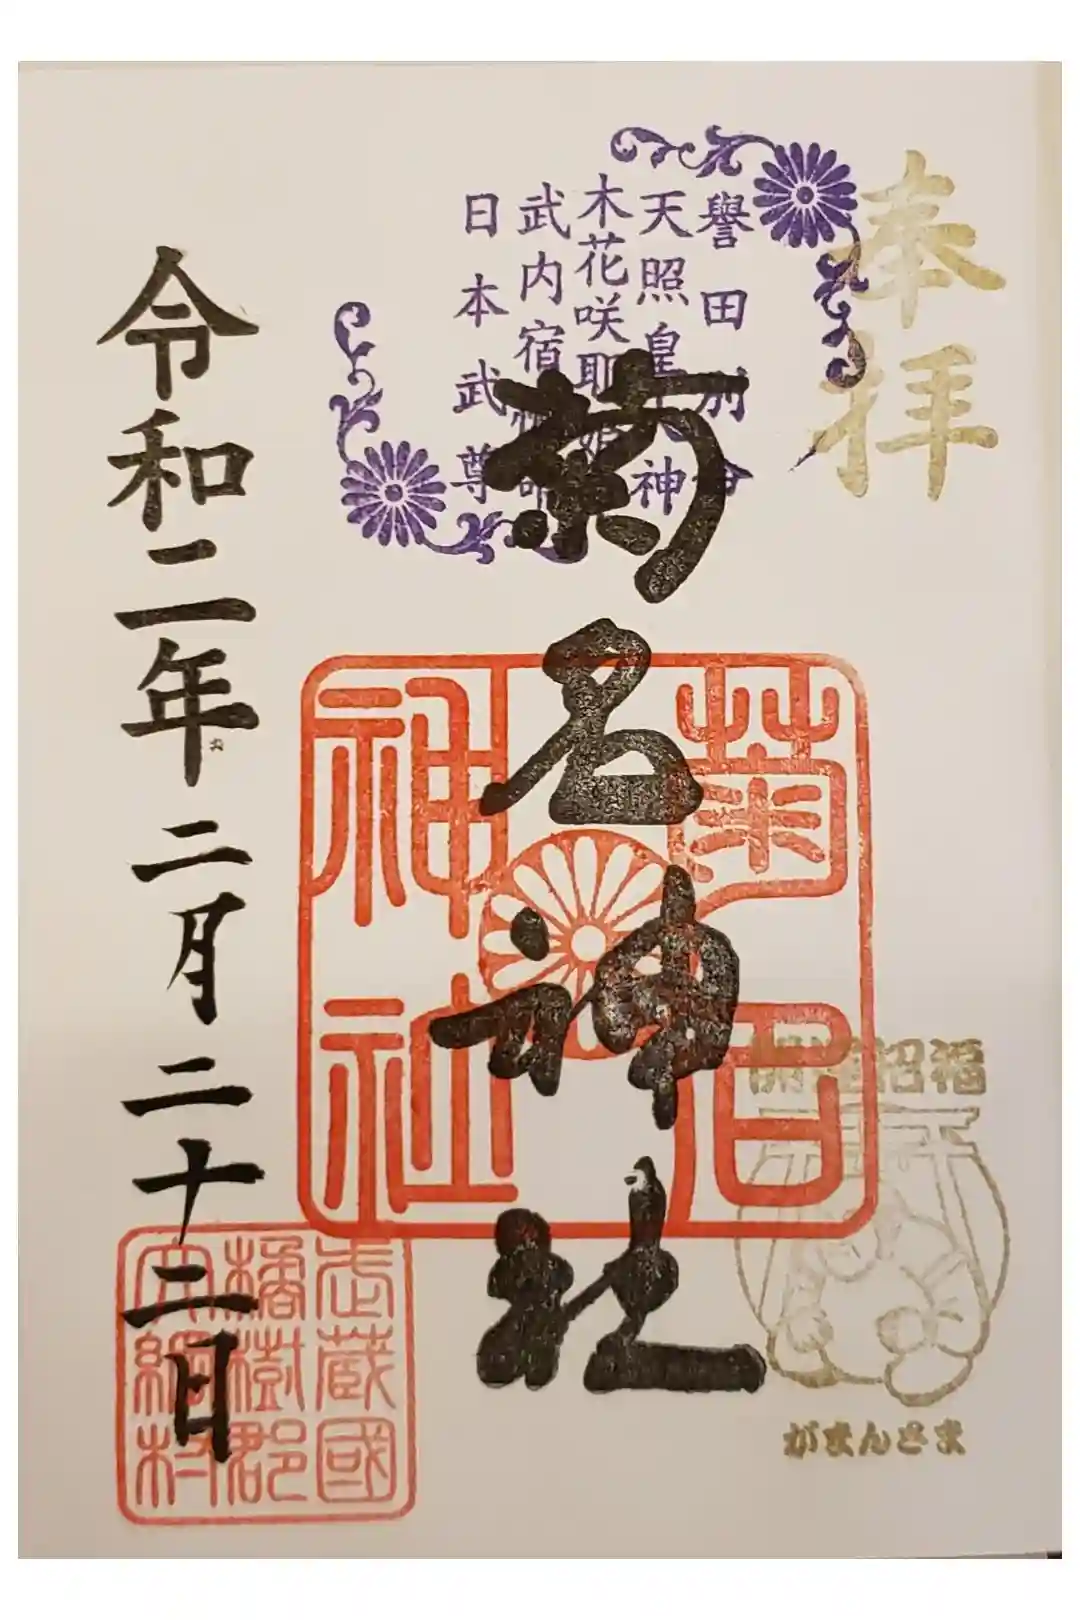 奉拝
譽田別命
天照皇大神
木花咲耶姫命
武内宿禰命
日本武尊
菊名神社
菊名
神社
開運招福
がまんさま
令和二年二月二十二日
武蔵國
橘樹郡
大綱村